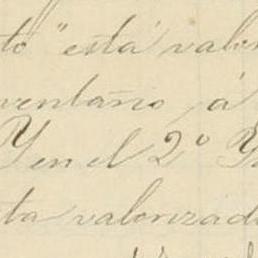 to "está valor
ventario, á
Y en el 2º Y
ta valorizad